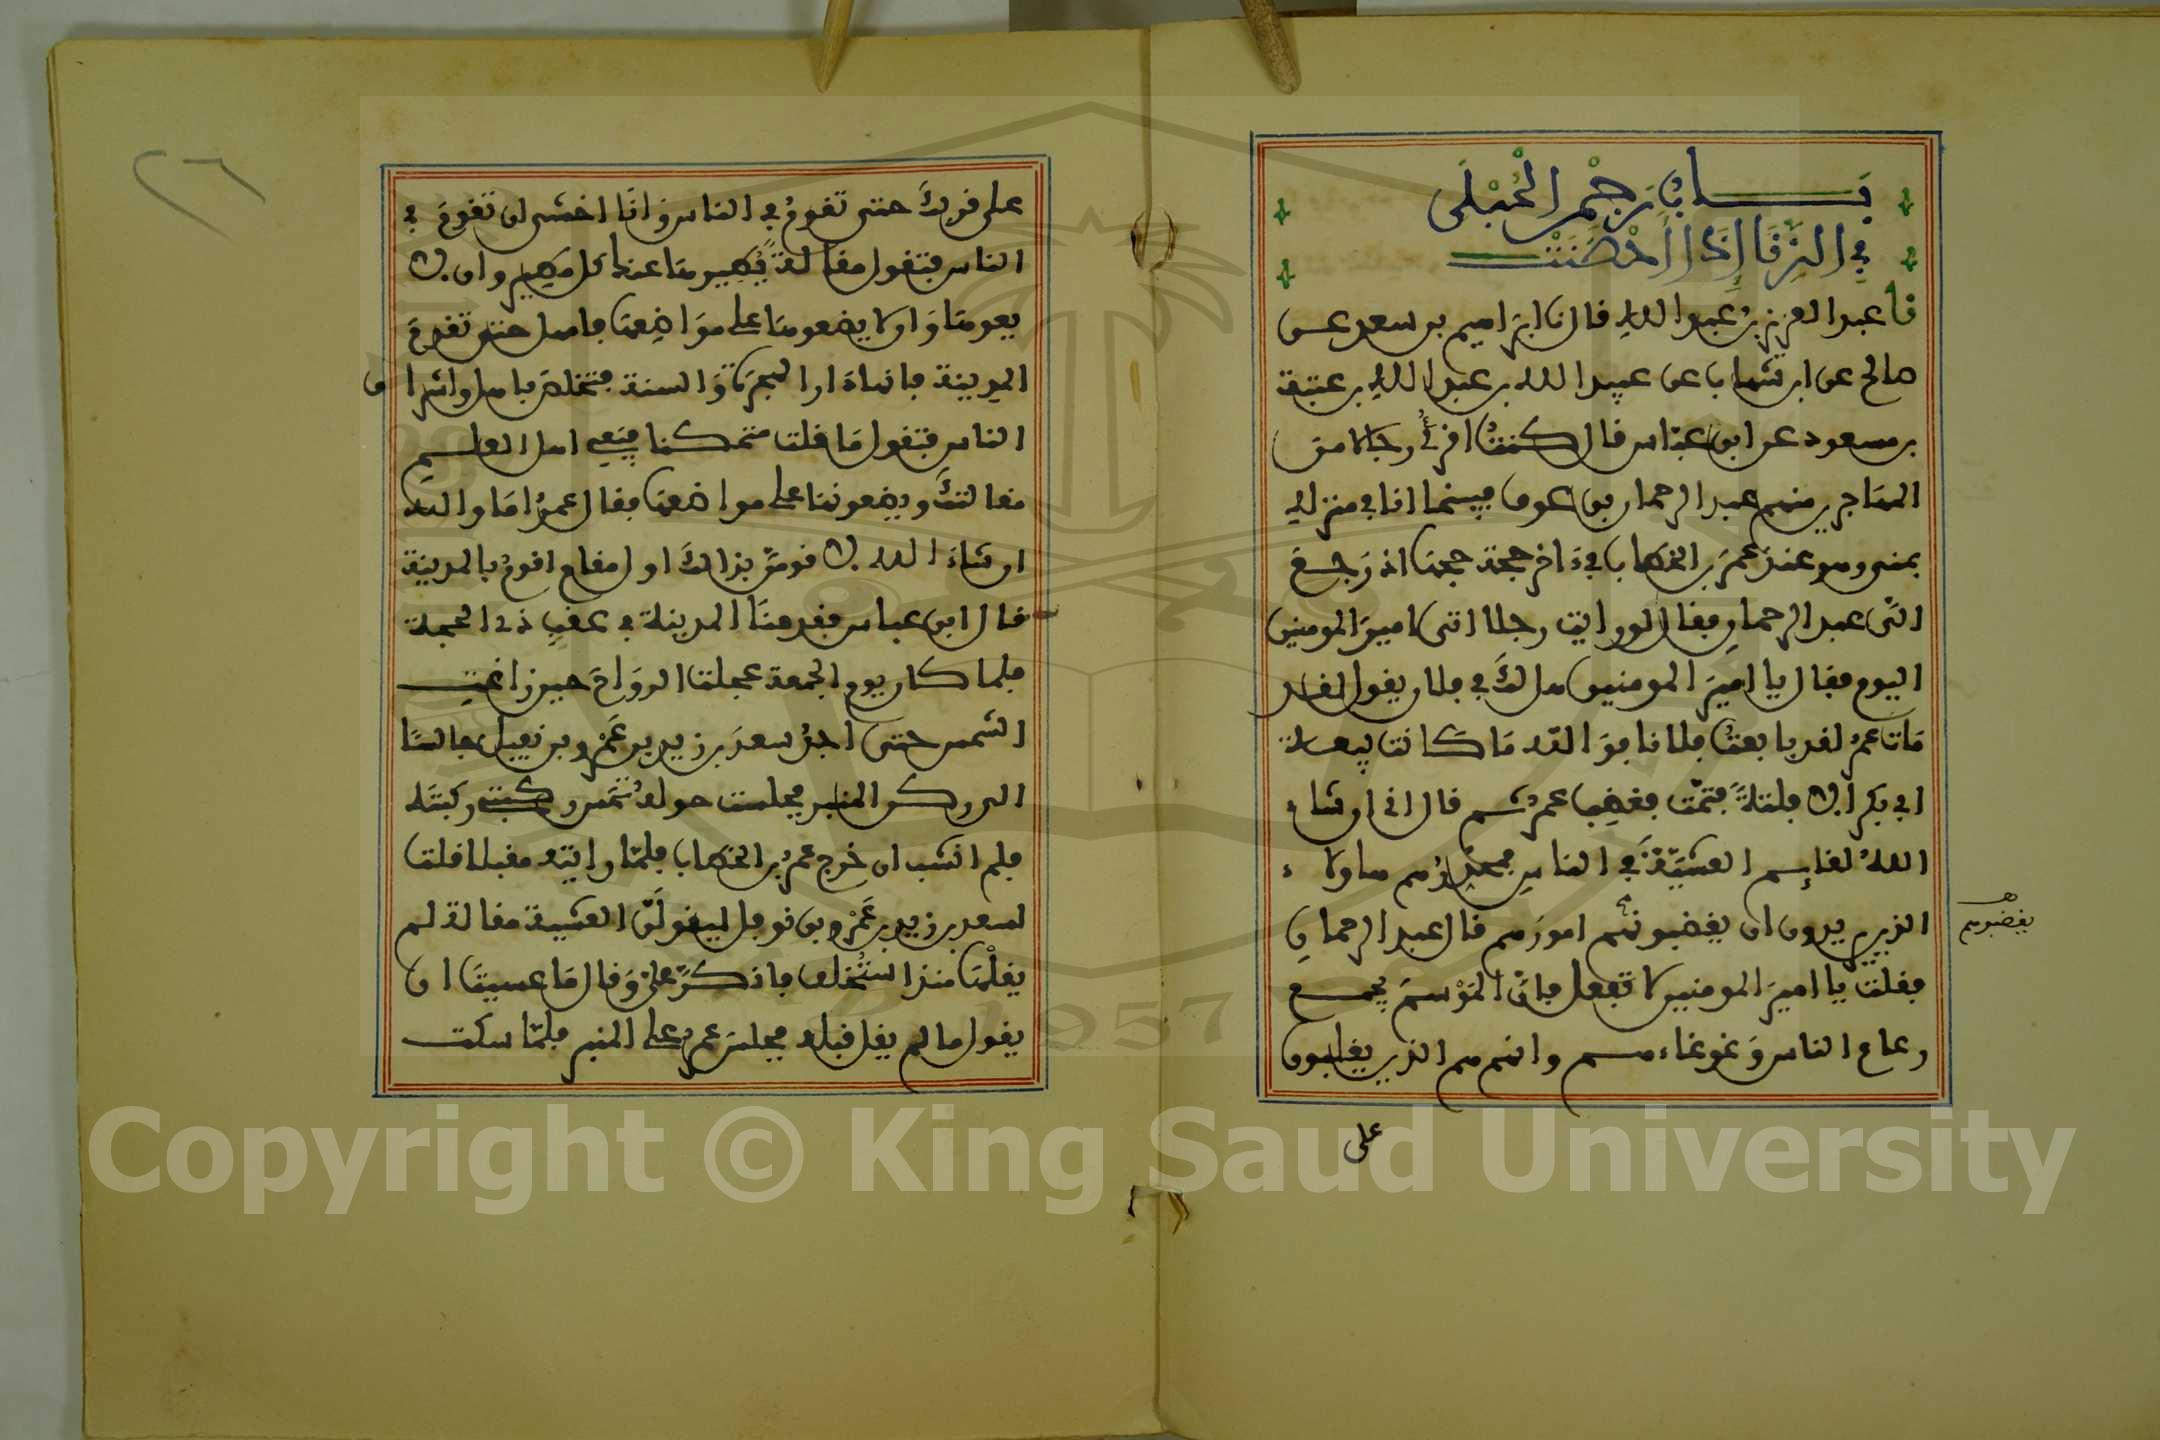 باب رجم الحبلى
في الزنا إذا أحصنت
نا عبد العزيز بن عبد الله قال نا ابراهيم بن سعد عن
صالح عن ابن شهاب عن عبيد الله بن عبد الله بن عتبة
بن مسعود عن ابن عباس قال كنت اقرئ رجالا من
المهاجرين منهم عبد الرحمان بن عوف فبينما انا في منزله
بمنى وهو عند عمر بن الخطاب في ءاخر حجة حجها اذ رجع
الي عبد الرحمان فقال لو رايت رجلا اتى امير المومنين
اليوم فقال يا امير المومنين هل لك في فلان يقول لقد
مات عمر لقد بايعت فلانا فو الله ما كانت بيعة
ابي بكر الا فلتة فتمت فغضب عمر ثم قال اني ان شاء
الله لقايم العشية في الناس فمحذرهم هاولاء
الذين يريدون ان يغضبونهم امورهم قال عبد الرحمان
يغضبوهم
فقلت يا امير المومنين لا تفعل فان الموسم يجمع
رعاع الناس وغوغاءهم وانهم هم الذين يغلبون
على
٢٦
على قربك حتى تقوم في الناس وانا اخشى ان تقوم في
الناس فتقول مقالة يطير بها عنك كل مطير وان لا
يعوها وان لا يضعوها على مواضعها فامهل حتى تقدم
المدينة فانها دار الهجرة والسنة فتخلص باهل واشراف
الناس فتقول ما قلت متمكنا فيعي اهل العلم
مقالتك ويضعونها على مواضعها فقال عمر اما والله
ان شاء الله لاقومن بذلك اول مقام اقوم بالمدينة
قال ابن عباس فقدمنا المدينة في عقب ذي الحجة
فلما كان يوم الجمعة عجلت الرواح حين زاغت
الشمس حتى اجد سعد بن زيد بن عمرو بن نفيل جالسا
الى ركن المنبر فجلست حوله تمس ركبتي ركبته
فلم انشب ان خرج عمر بن الخطاب فلما رايته مقبلا قلت
لسعد بن زيد بن عمرو بن نوفل ليقولن العشية مقالة لم
يقلها منذ استخلف فانكر علي وقال ما عسيت ان
يقول ما لم يقل قبله فجلس عمر على المنبر فلما سكت
Copyright © King Saud University
1957